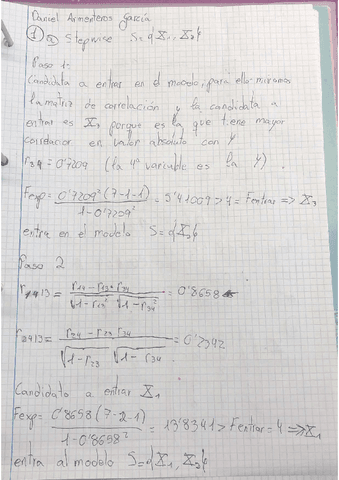 Daniel Armenteros García
① ⓐ Stepwise S={X₁, X₃}
Paso 1:
Candidata a entrar en el modelo, para ello miramos
la matriz de correlación y la candidata a
entrar es X₃ porque es la que tiene mayor
correlación en valor absoluto con Y
r₃₄ = 0'7209 (la 4ª variable es la Y).
Fexp= 0'7209² (7-1-1) / 1-0'7209² = 5'41009 > 4 = Fentrar => X₃
entra en el modelo S={X₃}
Paso 2
r₁₄·₁₃ = r₁₄ - r₁₃·r₃₄ / √1-r₁₃² √1-r₃₄² = 0'8658
r₂₄·₁₃ = r₂₄ - r₂₃ r₃₄ / √1-r₂₃ √1-r₃₄ = 0'2342
Candidato a entrar X₁
Fexp= 0'8658 (7-2-1) / 1-0'8658² = 13'8341 > Fentrar = 4 => X₁
entra al modelo S={X₁, X₃}